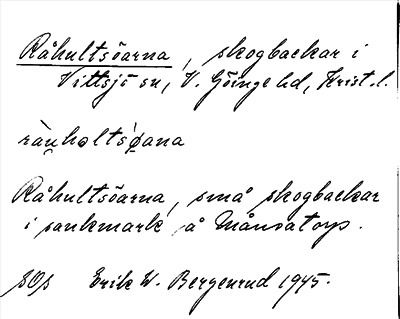 Råhultsöarna, skogbackar i
Vittsjö sn, V. Göinge hd, Krist. l.
rå̀nhͅoltsøͅana
Råhultsöarna, små skogbackar
i sankmark å Månsatorp.
SOs Erik W. Bergenrud 1945.